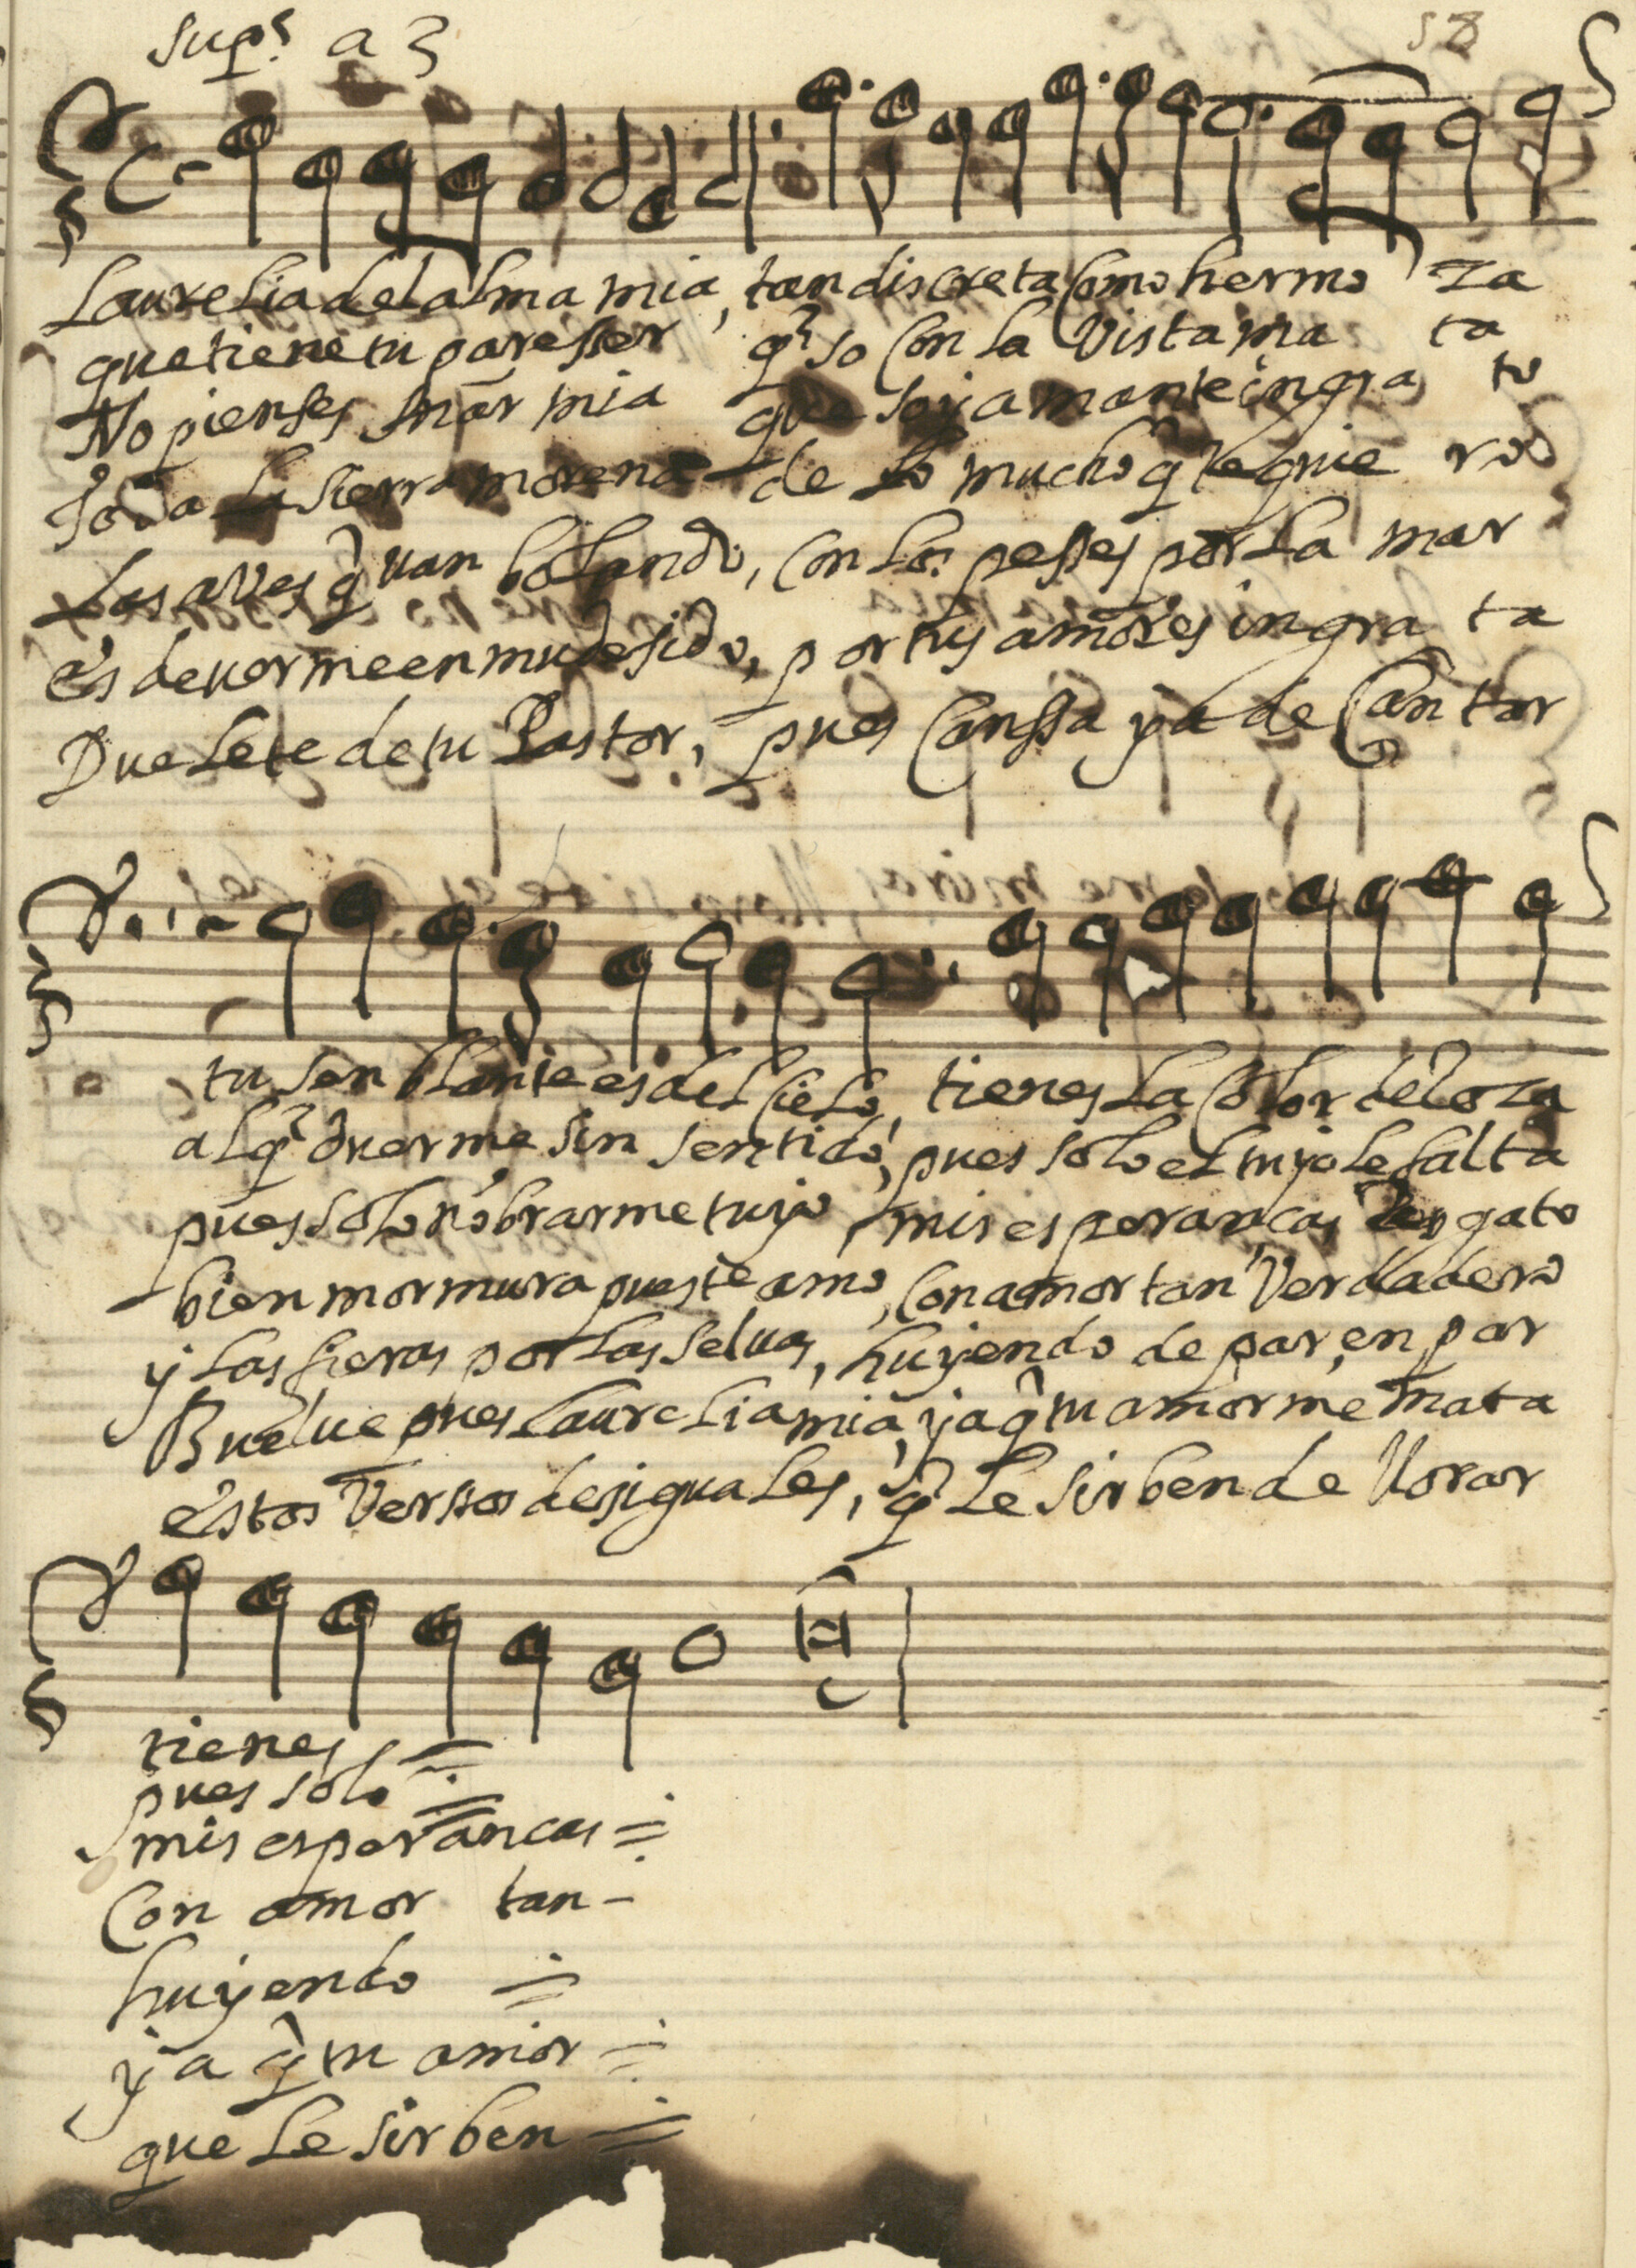 Sup.s a 3
58
Laurelia del alma mia, tan discreta Como hermo za
que tiene tu paresser q.e so Con la Vista ma ta
No pienses mia que soy amante ingra to
Toda la sierra morena de lo mucho q te quie ro
Las aves q̃ van bolando, Con los pesses por la mar
es de verme enmudesido, por tus amores ingra ta
Duelete de tu Pastor, pues Canssa ya de Can tar
tu senblante es del Cielo, tienes La Color de loza
al q.e duerme sin sentido, pues solo el tuyo le falta
pues solo nõbrarme tuyo, mis esperancas gato
bien mormura pues te amo, Con amor tan Verdadero
y las fieras por las selvas, huyendo de par en par
Buelve pues Laurelia mia, ya q̃ tu amor me mata
estos Versos desiguales, q̃ le sirben de llorar
tienes =
pues solo =
mis esperancas =
Con amor tan -
huyendo =
ya q̃ tu amor =
que le sirben =